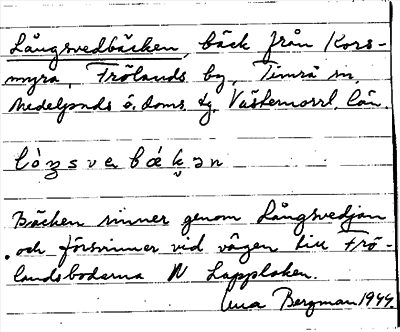 Långsvedbäcken, bäck från Kors-
myra, Frölands by, Timrå sn,
Medelpads ö. doms. tg. Västernorrl. län.
lòŋsvebákən
Bäcken rinner genom Långsvedjan
och försvinner vid vägen till Frö-
landsbodarna N Lapploken.
Bergman 1944.